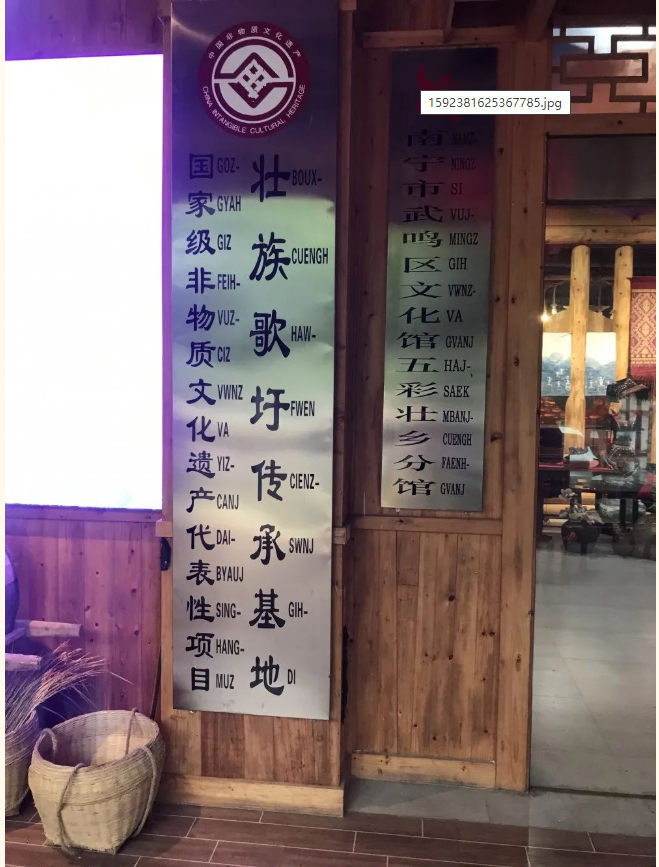 中国非物质文化遗产
CHINA INTANGIBLE CULTURAL HERITAGE
国家级非物质文化遗产代表性项目
GOZ-GYAH GIZ FEIH-VUZ-CIZ VWNZ VA YIZ-CANJ DAI-BYAUJ SING-HANG-MUZ
壮族歌圩传承基地
BOUX-CUENGH HAW-FWEN CIENZ-SWNJ GIH-DI
1592381625367785.jpg
南宁市武鸣区文化馆五彩壮乡分馆
NANZ-NINGZ SI VUJ-MINGZ GIH VWNZ-VA GVANJ HAJ-SAEK MBANJ-CUENGH FAENH-GVANJ